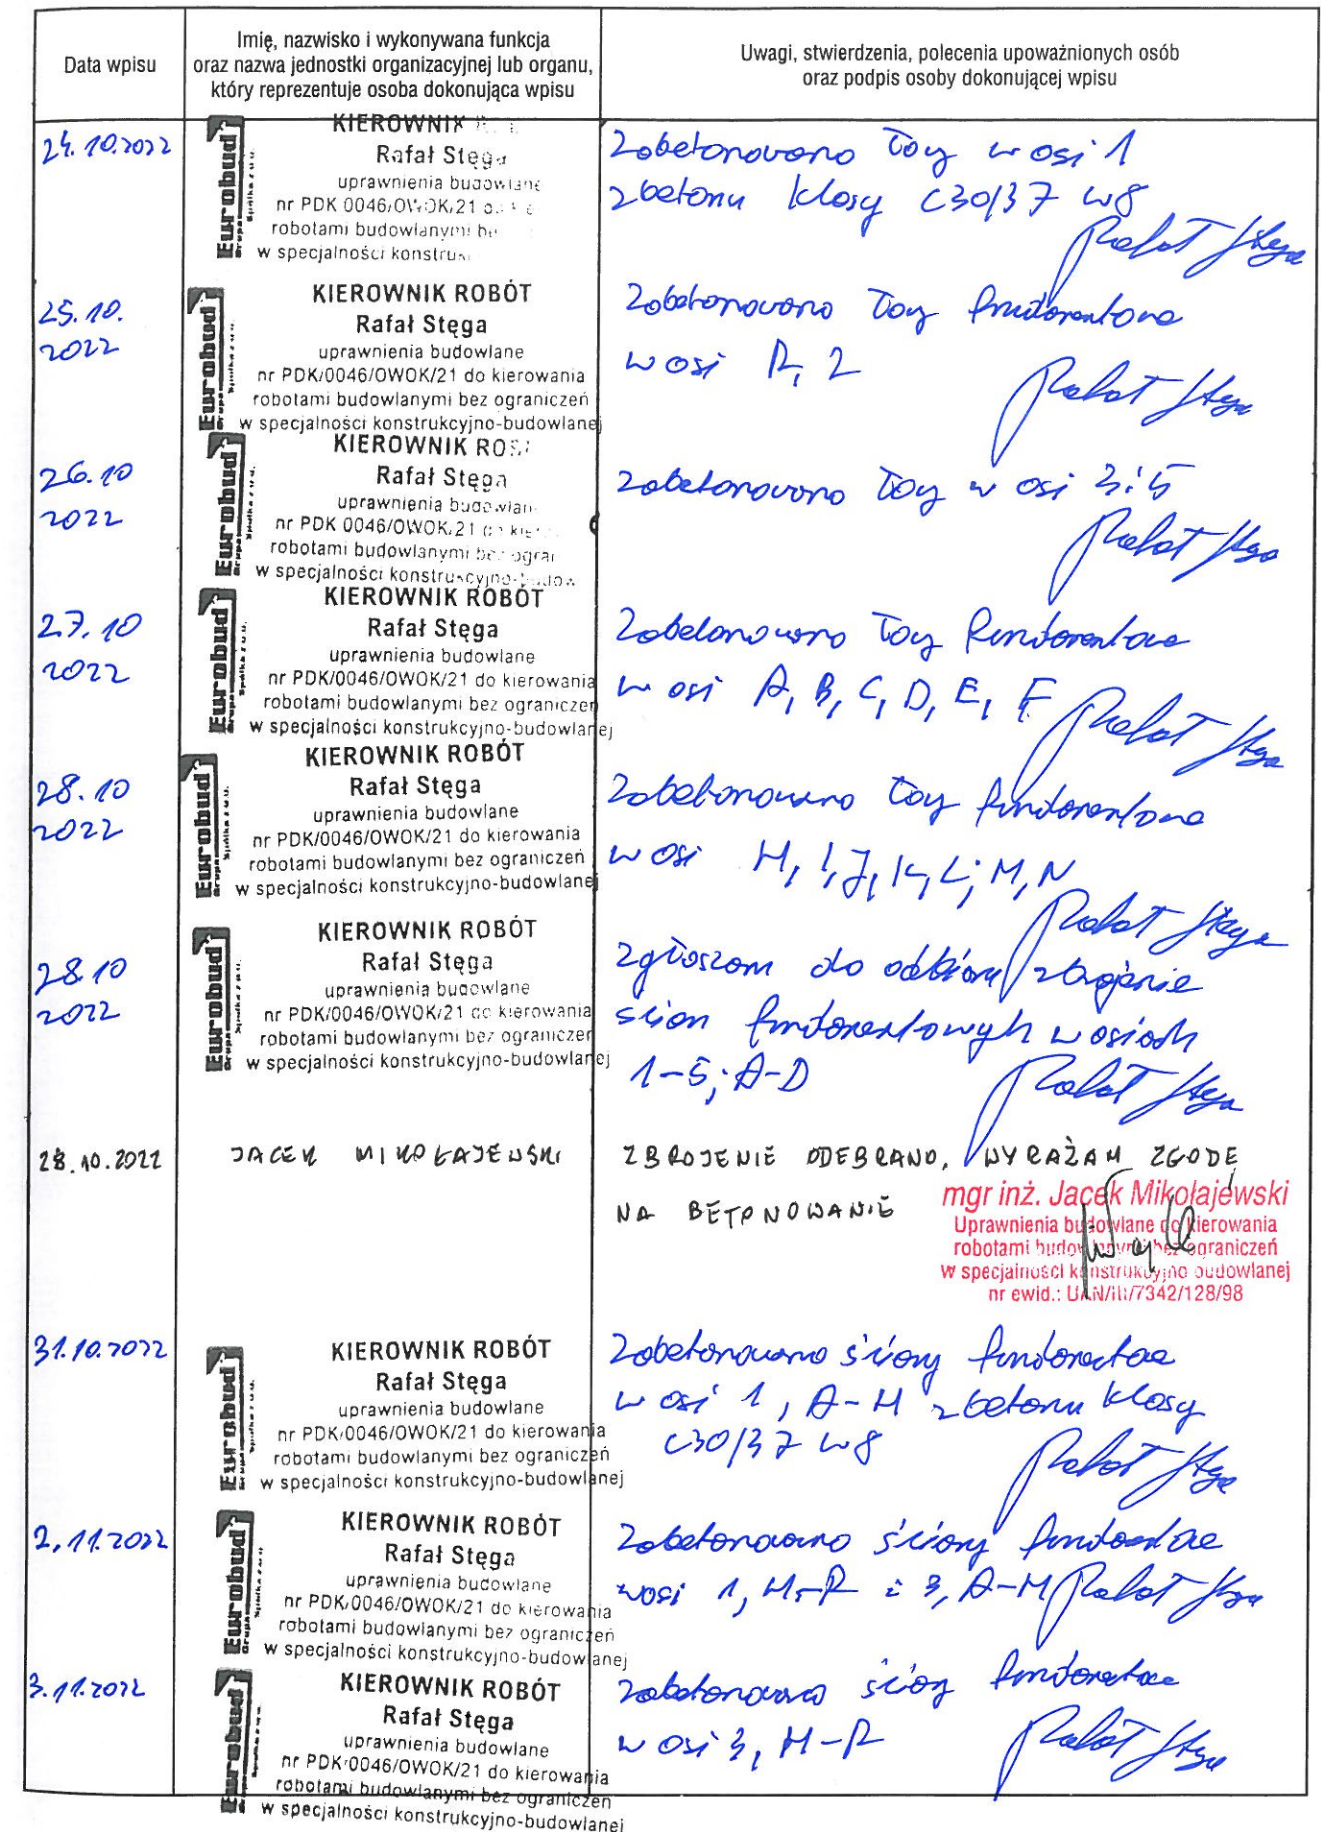 Data wpisu
Imię, nazwisko i wykonywana funkcja
oraz nazwa jednostki organizacyjnej lub organu,
który reprezentuje osoba dokonująca wpisu
Uwagi, stwierdzenia, polecenia upoważnionych osób
oraz podpis osoby dokonującej wpisu
24.10.2022
Eurobud
Grupa Spółka z o.o.
KIEROWNIK
Rafał Stęga
uprawnienia budowlane
nr PDK 0046/OWOK/21
robotami budowlanymi
w specjalności
Zabetonowano ławy w osi 1
z betonu klasy C30/37 W8
Rafał Stęga
25.10.
2022
Eurobud
Grupa Spółka z o.o.
KIEROWNIK ROBÓT
Rafał Stęga
uprawnienia budowlane
nr PDK/0046/OWOK/21 do kierowania
robotami budowlanymi bez ograniczeń
w specjalności konstrukcyjno-budowlanej
Zabetonowano ławy fundamentowe
w osi R, 2
Rafał Stęga
26.10
2022
Eurobud
Grupa Spółka z o.o.
KIEROWNIK
Rafał Stęga
uprawnienia
nr PDK 0046/OWOK/21 do
robotami budowlanymi bez
w specjalności konstrukcyjno-
zabetonowano ławy w osi 3 i 5
Rafał Stęga
27.10
2022
Eurobud
Grupa Spółka z o.o.
KIEROWNIK ROBÓT
Rafał Stęga
uprawnienia budowlane
nr PDK/0046/OWOK/21 do kierowania
robotami budowlanymi bez ograniczeń
w specjalności konstrukcyjno-budowlanej
Zabetonowano ławy fundamentowe
w osi A, B, C, D, E, F
Rafał Stęga
28.10
2022
Eurobud
Grupa Spółka z o.o.
KIEROWNIK ROBÓT
Rafał Stęga
uprawnienia budowlane
nr PDK/0046/OWOK/21 do kierowania
robotami budowlanymi bez ograniczeń
w specjalności konstrukcyjno-budowlanej
Zabetonowano ławy fundamentowe
w osi H, I, J, K, L; M, N
Rafał Stęga
28.10
2022
Eurobud
Grupa Spółka z o.o.
KIEROWNIK ROBÓT
Rafał Stęga
uprawnienia budowlane
nr PDK/0046/OWOK/21 do kierowania
robotami budowlanymi bez ograniczeń
w specjalności konstrukcyjno-budowlanej
Zgłaszam do odbioru zbrojenie
ścian fundamentowych w osiach
1-5; A-D
Rafał Stęga
28.10.2022
JACEK MIKOŁAJEWSKI
ZBROJENIE ODEBRANO, WYRAŻAM ZGODĘ
NA BETONOWANIE
mgr inż. Jacek Mikołajewski
Uprawnienia budowlane do kierowania
robotami budowlanymi bez ograniczeń
w specjalności konstrukcyjno budowlanej
nr ewid.: UAN/III/7342/128/98
31.10.2022
Eurobud
Grupa Spółka z o.o.
KIEROWNIK ROBÓT
Rafał Stęga
uprawnienia budowlane
nr PDK/0046/OWOK/21 do kierowania
robotami budowlanymi bez ograniczeń
w specjalności konstrukcyjno-budowlanej
Zabetonowano ściany fundamentowe
w osi 1, A-H z betonu klasy
C30/37 W8
Rafał Stęga
2.11.2022
Eurobud
Grupa Spółka z o.o.
KIEROWNIK ROBÓT
Rafał Stęga
uprawnienia budowlane
nr PDK/0046/OWOK/21 do kierowania
robotami budowlanymi bez ograniczeń
w specjalności konstrukcyjno-budowlanej
Zabetonowano ściany fundamentowe
w osi 1, H-R i 3, A-H Rafał Stęga
3.11.2022
Eurobud
Grupa Spółka z o.o.
KIEROWNIK ROBÓT
Rafał Stęga
uprawnienia budowlane
nr PDK/0046/OWOK/21 do kierowania
robotami budowlanymi bez ograniczeń
w specjalności konstrukcyjno-budowlanej
zabetonowano ściany fundamentowe
w osi 3, H-R
Rafał Stęga